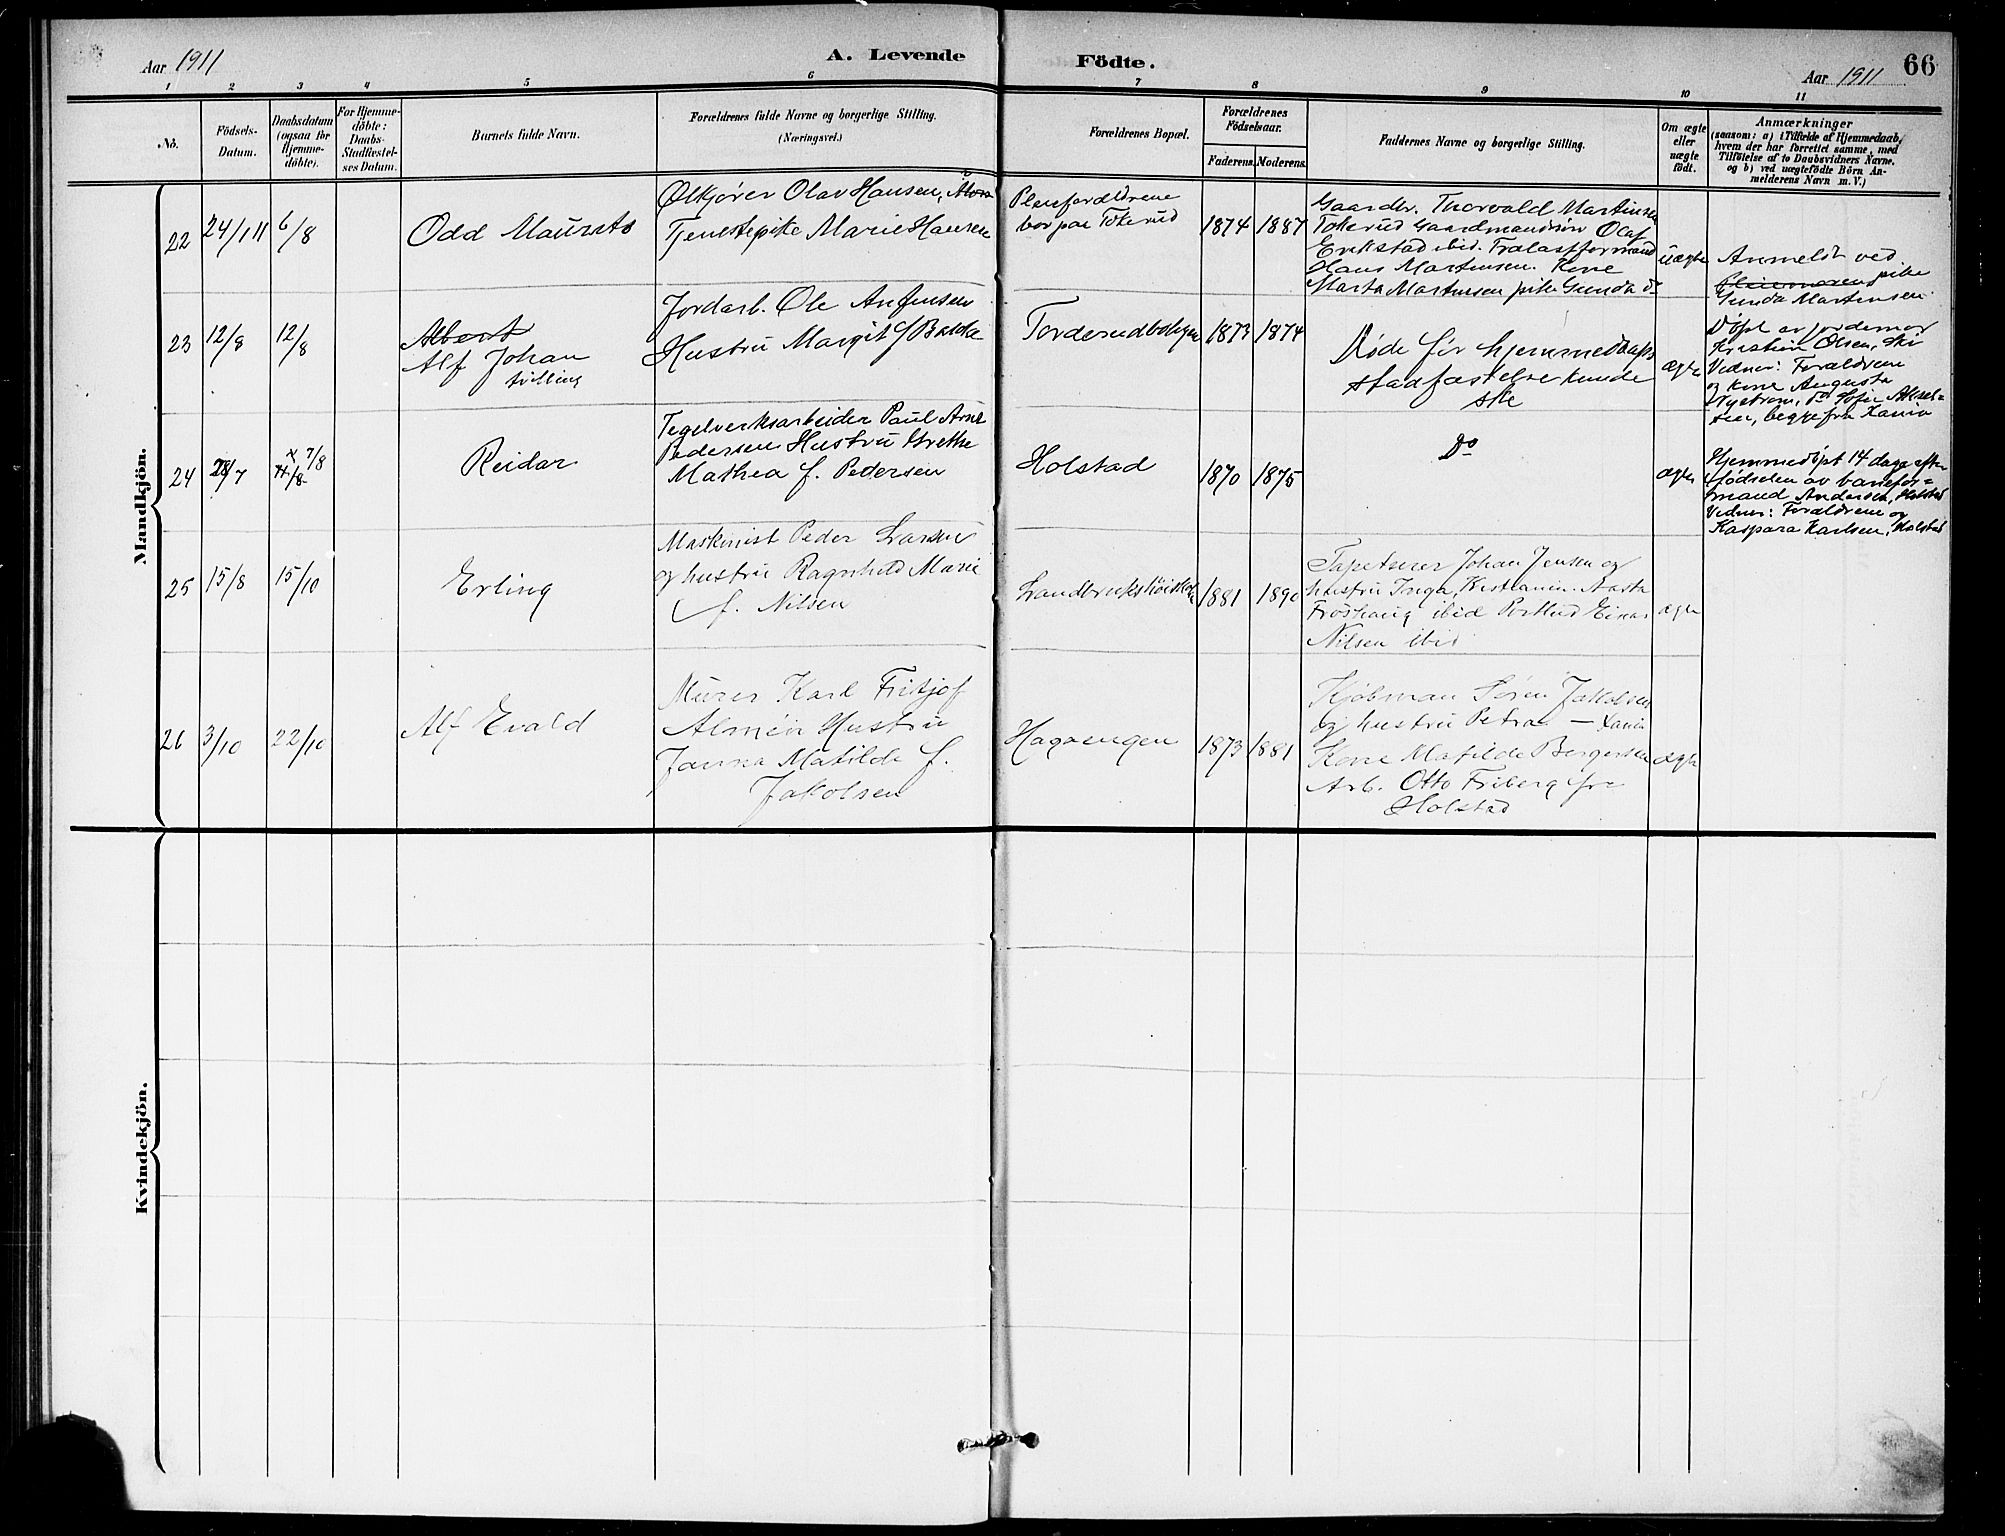 Aar 1911
A. Levende Födte.
66
Aar 1911
1 2 3 4 5 6 7 8 9 10 11
No.
Födsels-
Datum.
Daabsdatum
(ogsaa for
Hjemme-
döbte).
For Hjemme-
döbte:
Daabs-
Stadfæstel-
ses Datum.
Barnets fulde Navn.
Forældrenes fulde Navne og borgerlige Stilling.
(Næringsvei.)
Forældrenes Bopæl.
Forældrenes
Födselsaar.
Faderens.
Moderens.
Faddernes Navne og borgerlige Stilling.
Om ægte
eller
uægte
födt.
Anmærkninger
(saasom: a) i Tilfælde af Hjemmedaab,
hvem der har forrettet samme, med
Tilföielse af to Daabsvidners Navne,
og b) ved uægtefödte Börn An-
melderens Navn m. V.)
Mandkjön.
22
24/1 11
6/8
Odd Maurits
Ølkjører Olav Hansen,
Tjenestepike Marie Hansen
Pleieforældrene
bor paa Tokerud
1874
1887
Gaardbr. Thorvald Martinsen
Tokerud Gaardmandsøn Olaf
Erikstad ibid.
Hans Martinsen. Kone
Marta Martinsen pike Gunda do
uægte
Anmeldt ved
pike
Gunda Martinsen
23
12/8
12/8
Albert
Alf Johan
tvilling
Jordarb. Ole Anfinsen
Hustru Margit f.
1873
1874
Døde før hjemmedaabs
stadfæstelse kunde
ske
ægte
Døpt av jordemor
Kristine Olsen, Ski
Vidner: Forældrene
og kone Augusta
Nystrøm, do Sofie
begge fra Xania
24
28/7
x 7/8
Reidar
Teglverksarbeider Paul Arne
Pedersen Hustru Grethe
Mathea f. Pedersen
Holstad
1870
1875
Do
ægte
Hjemmedøpt 14 dage efter
fødselen av banefor-
mand Andersen, Holstad
Vidner: Forældrene og
Kaspara Karlsen, Holstad
25
15/8
15/10
Erling
Maskinist Peder Larsen
og hustru Ragnhild Marie
f. Nilsen
Landbrukshøiskole
1881
1890
Tapetserer Johan Jensen og
hustru Inga, Kristiania. Aasta
Frøshaug ibid Postbud Einar
Nilsen ibid
ægte
26
3/10
22/10
Alf Evald
Murer Karl Fritjof
Almén Hustru
Janna Matilde f.
Jakobsen
Hagaengen
1873
1881
Kjøbman Søren Jakobsen
og hustru Petra — Xania
Kone Matilde Bergersen
Arb. Otto Friberg fra
Holstad
ægte
Kvindekjön.